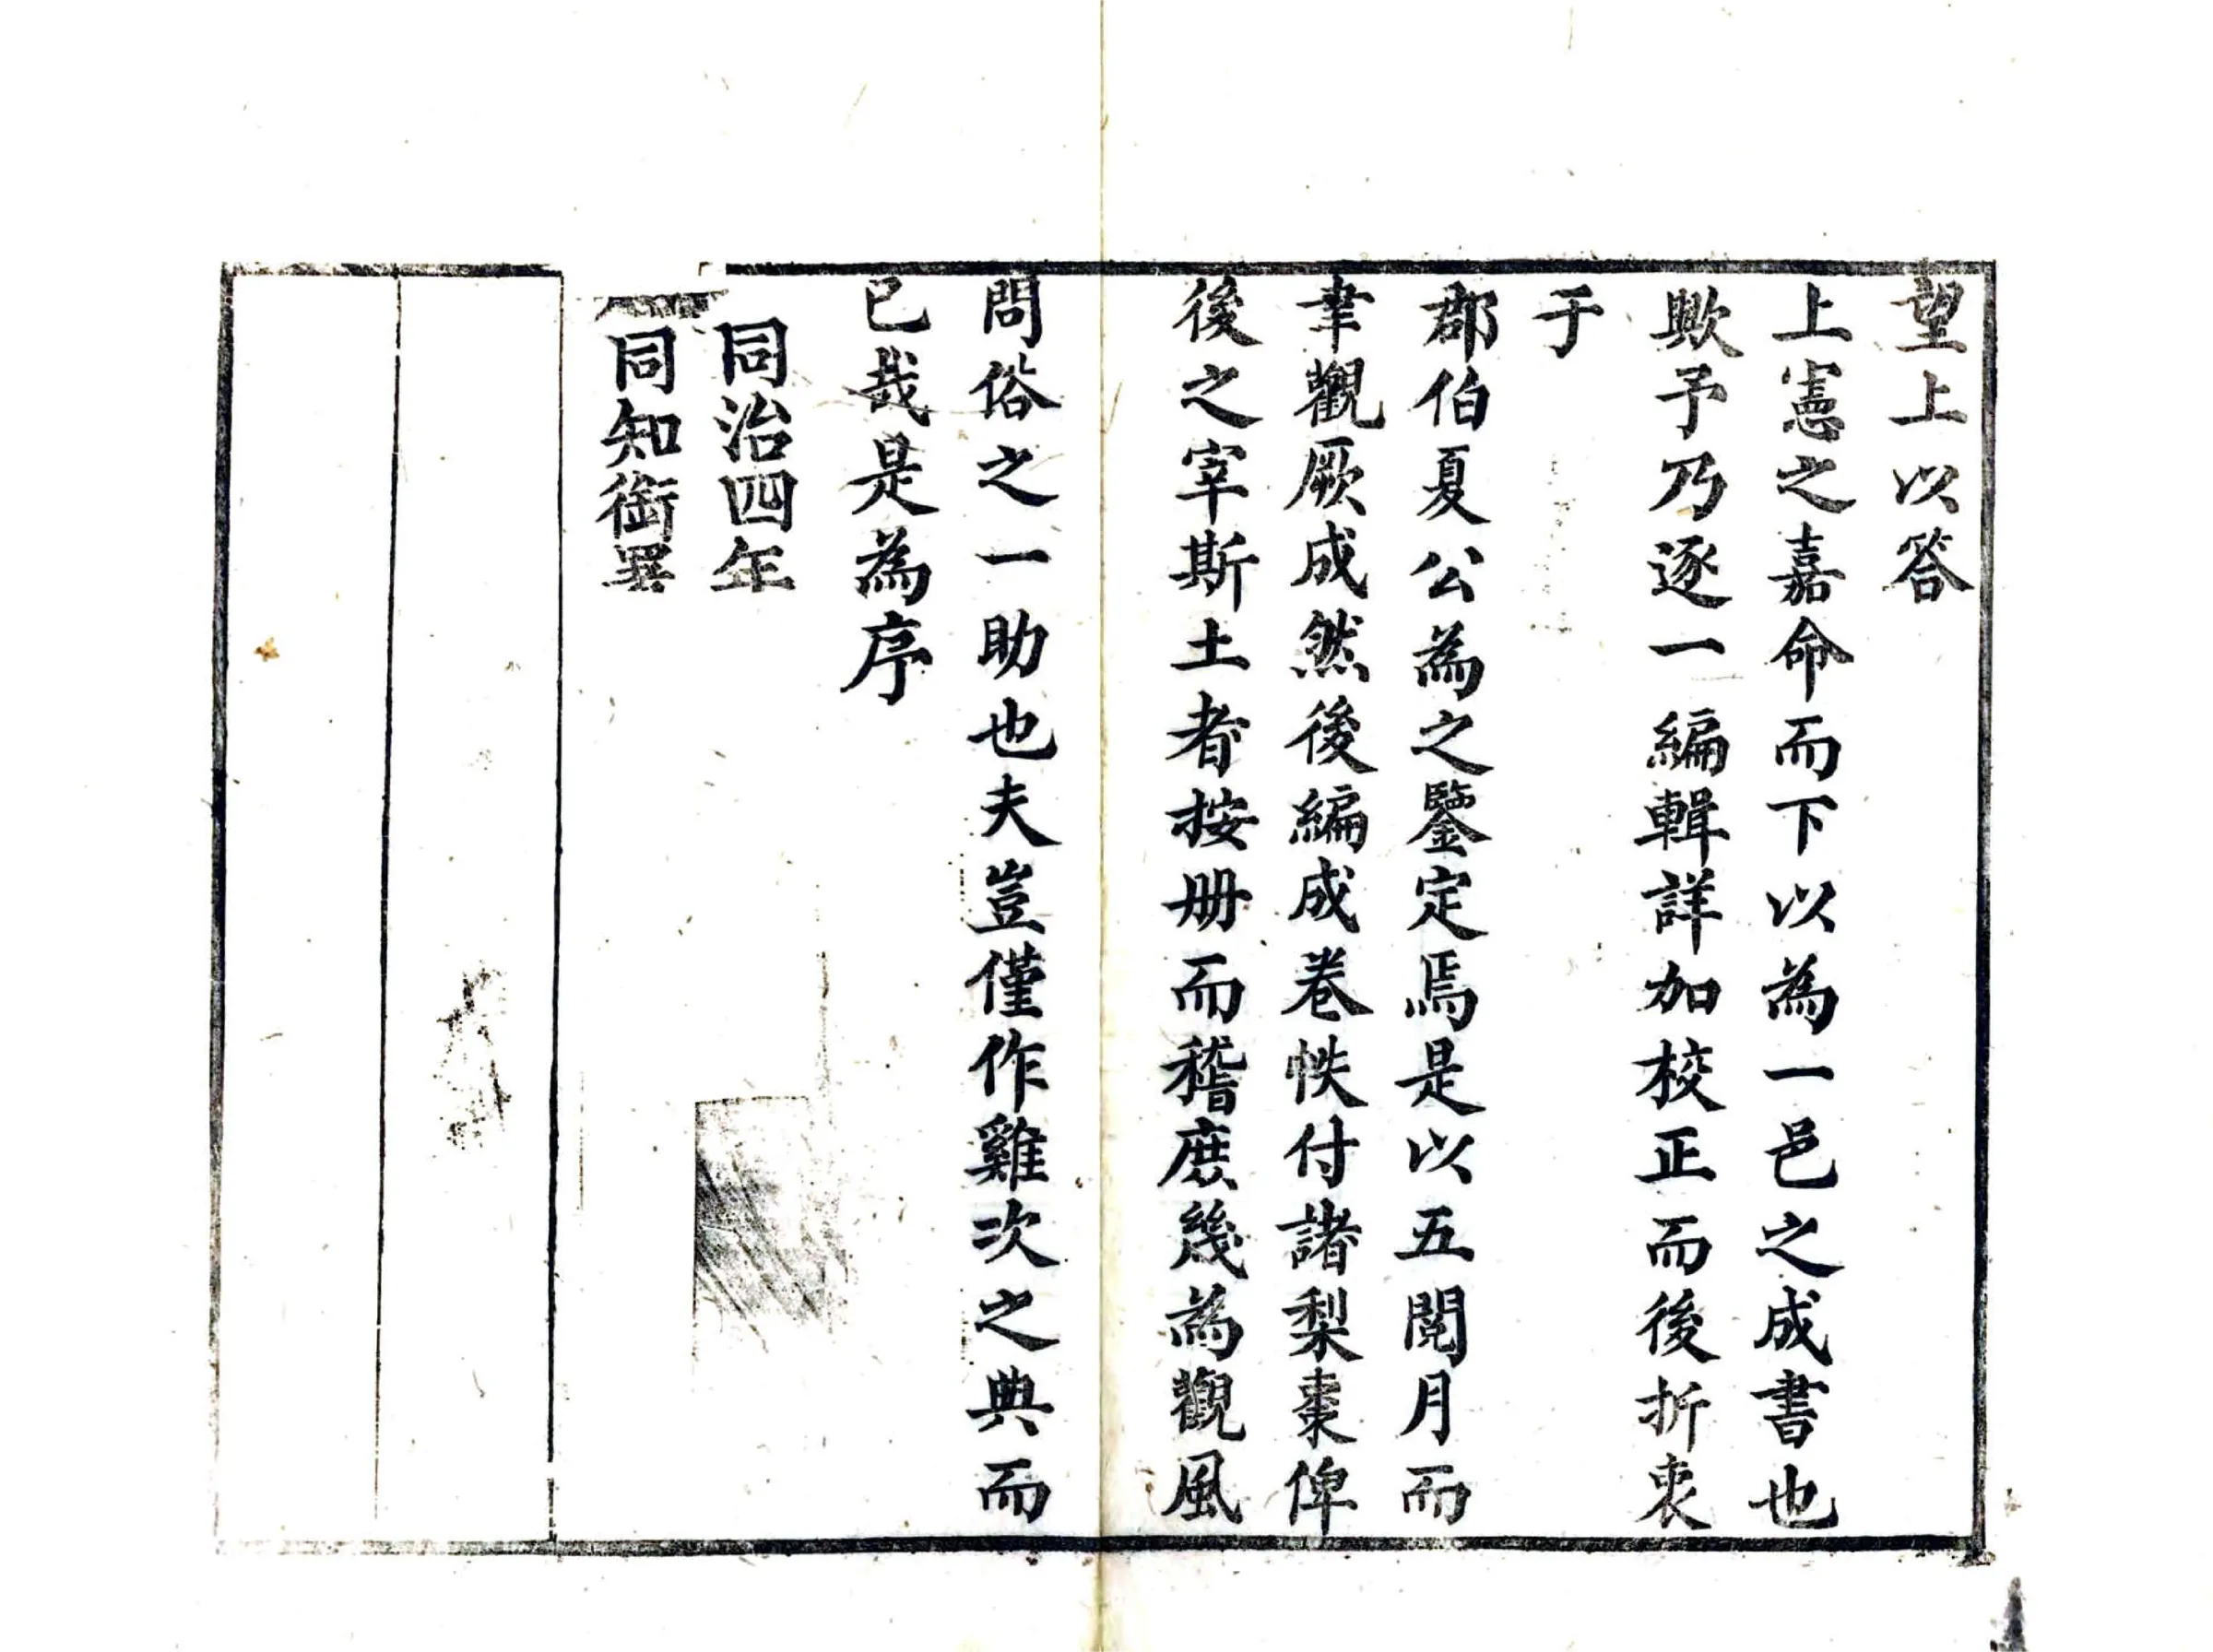 望上以答
上憲之嘉命而下以為一邑之成書也
歟予乃逐一編輯詳加校正而後折衷
于
郡伯夏公為之鑒定焉是以五閱月而
聿觀厥成然後編成卷帙付諸梨棗俾
後之宰斯土者按册而稽庶幾為觀風
問俗之一助也夫豈僅作雞次之典而
已哉是為序
同治四年
同知銜署